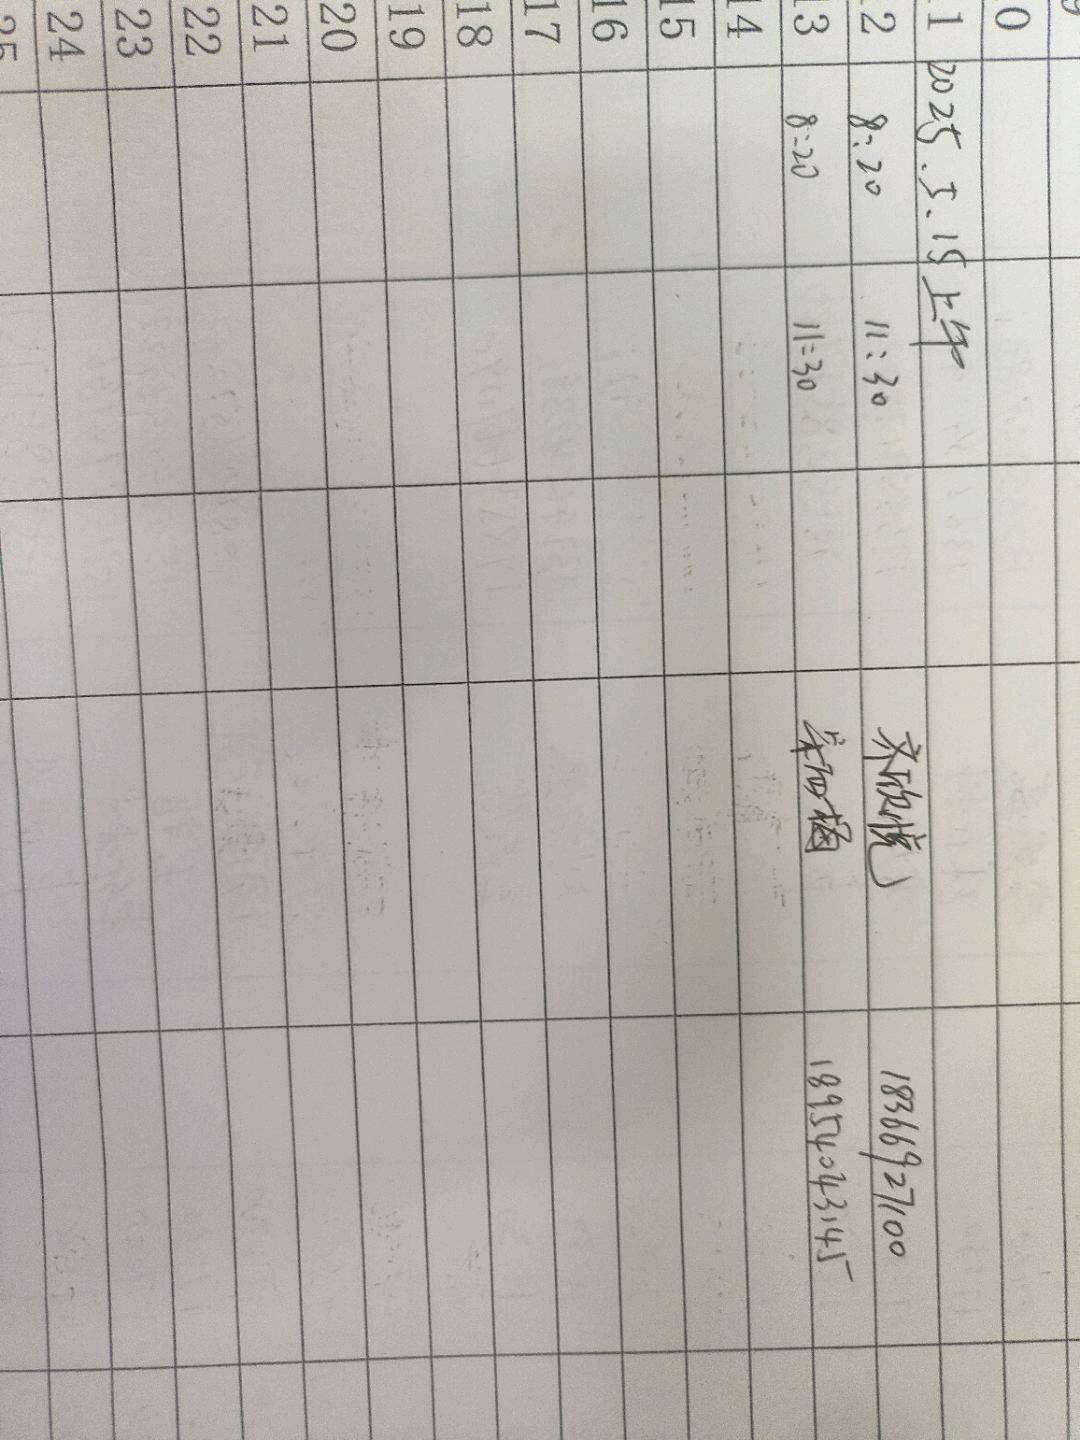 0
1 2025.5.15上午
2 8:20 11:30 齐欣悦 18366927100
3 8:20 11:30 18954043145
14
15
16
17
18
19
20
21
22
23
24
25